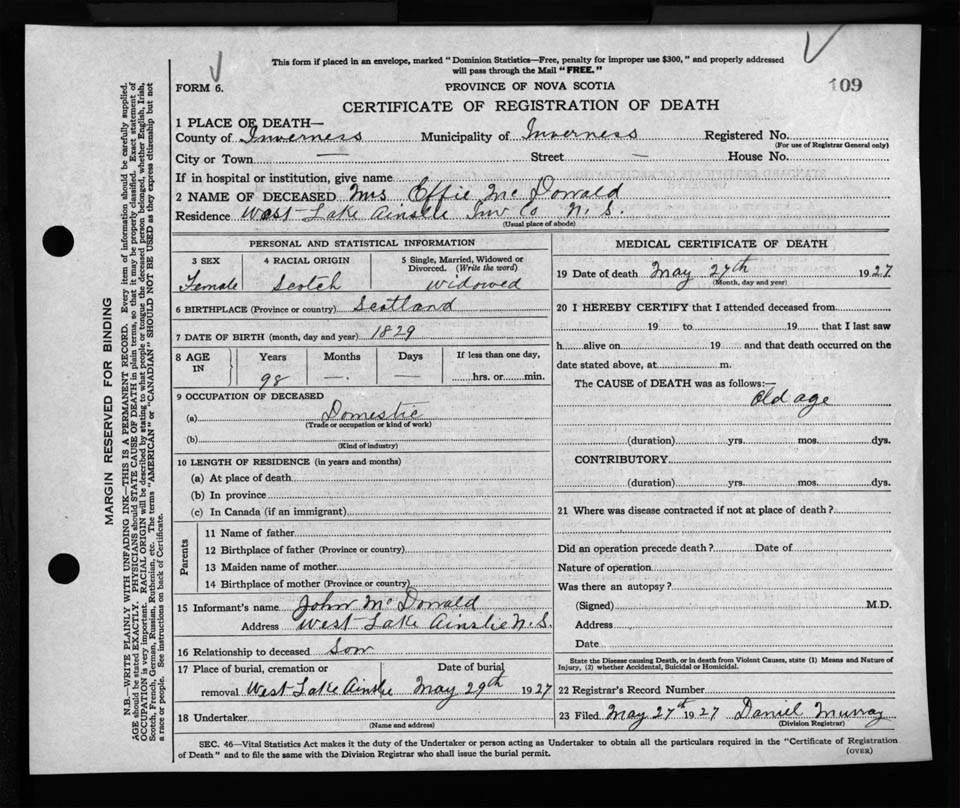 This form if placed in an envelope, marked "Dominion Statistics—Free, penalty for improper use $300," and properly addressed
will pass through the Mail "FREE."
FORM 6.
PROVINCE OF NOVA SCOTIA
109
CERTIFICATE OF REGISTRATION OF DEATH
1 PLACE OF DEATH—
County of Inverness Municipality of Inverness Registered No.
(For use of Registrar General only)
City or Town — Street — House No.
If in hospital or institution, give name
2 NAME OF DECEASED Mrs Effie McDonald
Residence West Lake Ainslie Inv Co N. S.
(Usual place of abode)
PERSONAL AND STATISTICAL INFORMATION
3 SEX 4 RACIAL ORIGIN 5 Single, Married, Widowed or
Divorced. (Write the word)
Female Scotch widowed
6 BIRTHPLACE (Province or country) Scotland
7 DATE OF BIRTH (month, day and year) 1829
8 AGE IN Years Months Days If less than one day,
98 — — hrs. or min.
9 OCCUPATION OF DECEASED
(a) Domestic
(Trade or occupation or kind of work)
(b)
(Kind of industry)
10 LENGTH OF RESIDENCE (in years and months)
(a) At place of death
(b) In province
(c) In Canada (if an immigrant)
Parents
11 Name of father
12 Birthplace of father (Province or country)
13 Maiden name of mother
14 Birthplace of mother (Province or country)
15 Informant's name John McDonald
Address West Lake Ainslie N. S.
16 Relationship to deceased Son
17 Place of burial, cremation or Date of burial
removal West Lake Ainslie May 29th 1927
18 Undertaker
(Name and address)
MEDICAL CERTIFICATE OF DEATH
19 Date of death May 27th 1927
(Month, day and year)
20 I HEREBY CERTIFY that I attended deceased from
19 to 19 that I last saw
h alive on 19 and that death occurred on the
date stated above, at m.
The CAUSE of DEATH was as follows:—
Old age
(duration) yrs. mos. dys.
CONTRIBUTORY
(duration) yrs. mos. dys.
21 Where was disease contracted if not at place of death?
Did an operation precede death? Date of
Nature of operation
Was there an autopsy?
(Signed) M.D.
Address
Date
State the Disease causing Death, or in death from Violent Causes, state (1) Means and Nature of
Injury, (2) whether Accidental, Suicidal or Homicidal.
22 Registrar's Record Number
23 Filed May 27th 1927 Daniel Murray
(Division Registrar)
SEC. 46—Vital Statistics Act makes it the duty of the Undertaker or person acting as Undertaker to obtain all the particulars required in the "Certificate of Registration
of Death" and to file the same with the Division Registrar who shall issue the burial permit.
(OVER)
MARGIN RESERVED FOR BINDING
N.B.—WRITE PLAINLY WITH UNFADING INK—THIS IS A PERMANENT RECORD. Every item of information should be carefully supplied.
AGE should be stated EXACTLY. PHYSICIANS should STATE CAUSE OF DEATH in plain terms, so that it may be properly classified. Exact statement of
OCCUPATION is very important. RACIAL ORIGIN will be described by stating to what people or tongue the deceased person belonged, whether English, Irish,
Scotch, French, German, Russian, Ruthenian, etc. The terms "AMERICAN" or "CANADIAN" SHOULD NOT BE USED as they express citizenship but not
a race or people. See instructions on back of Certificate.